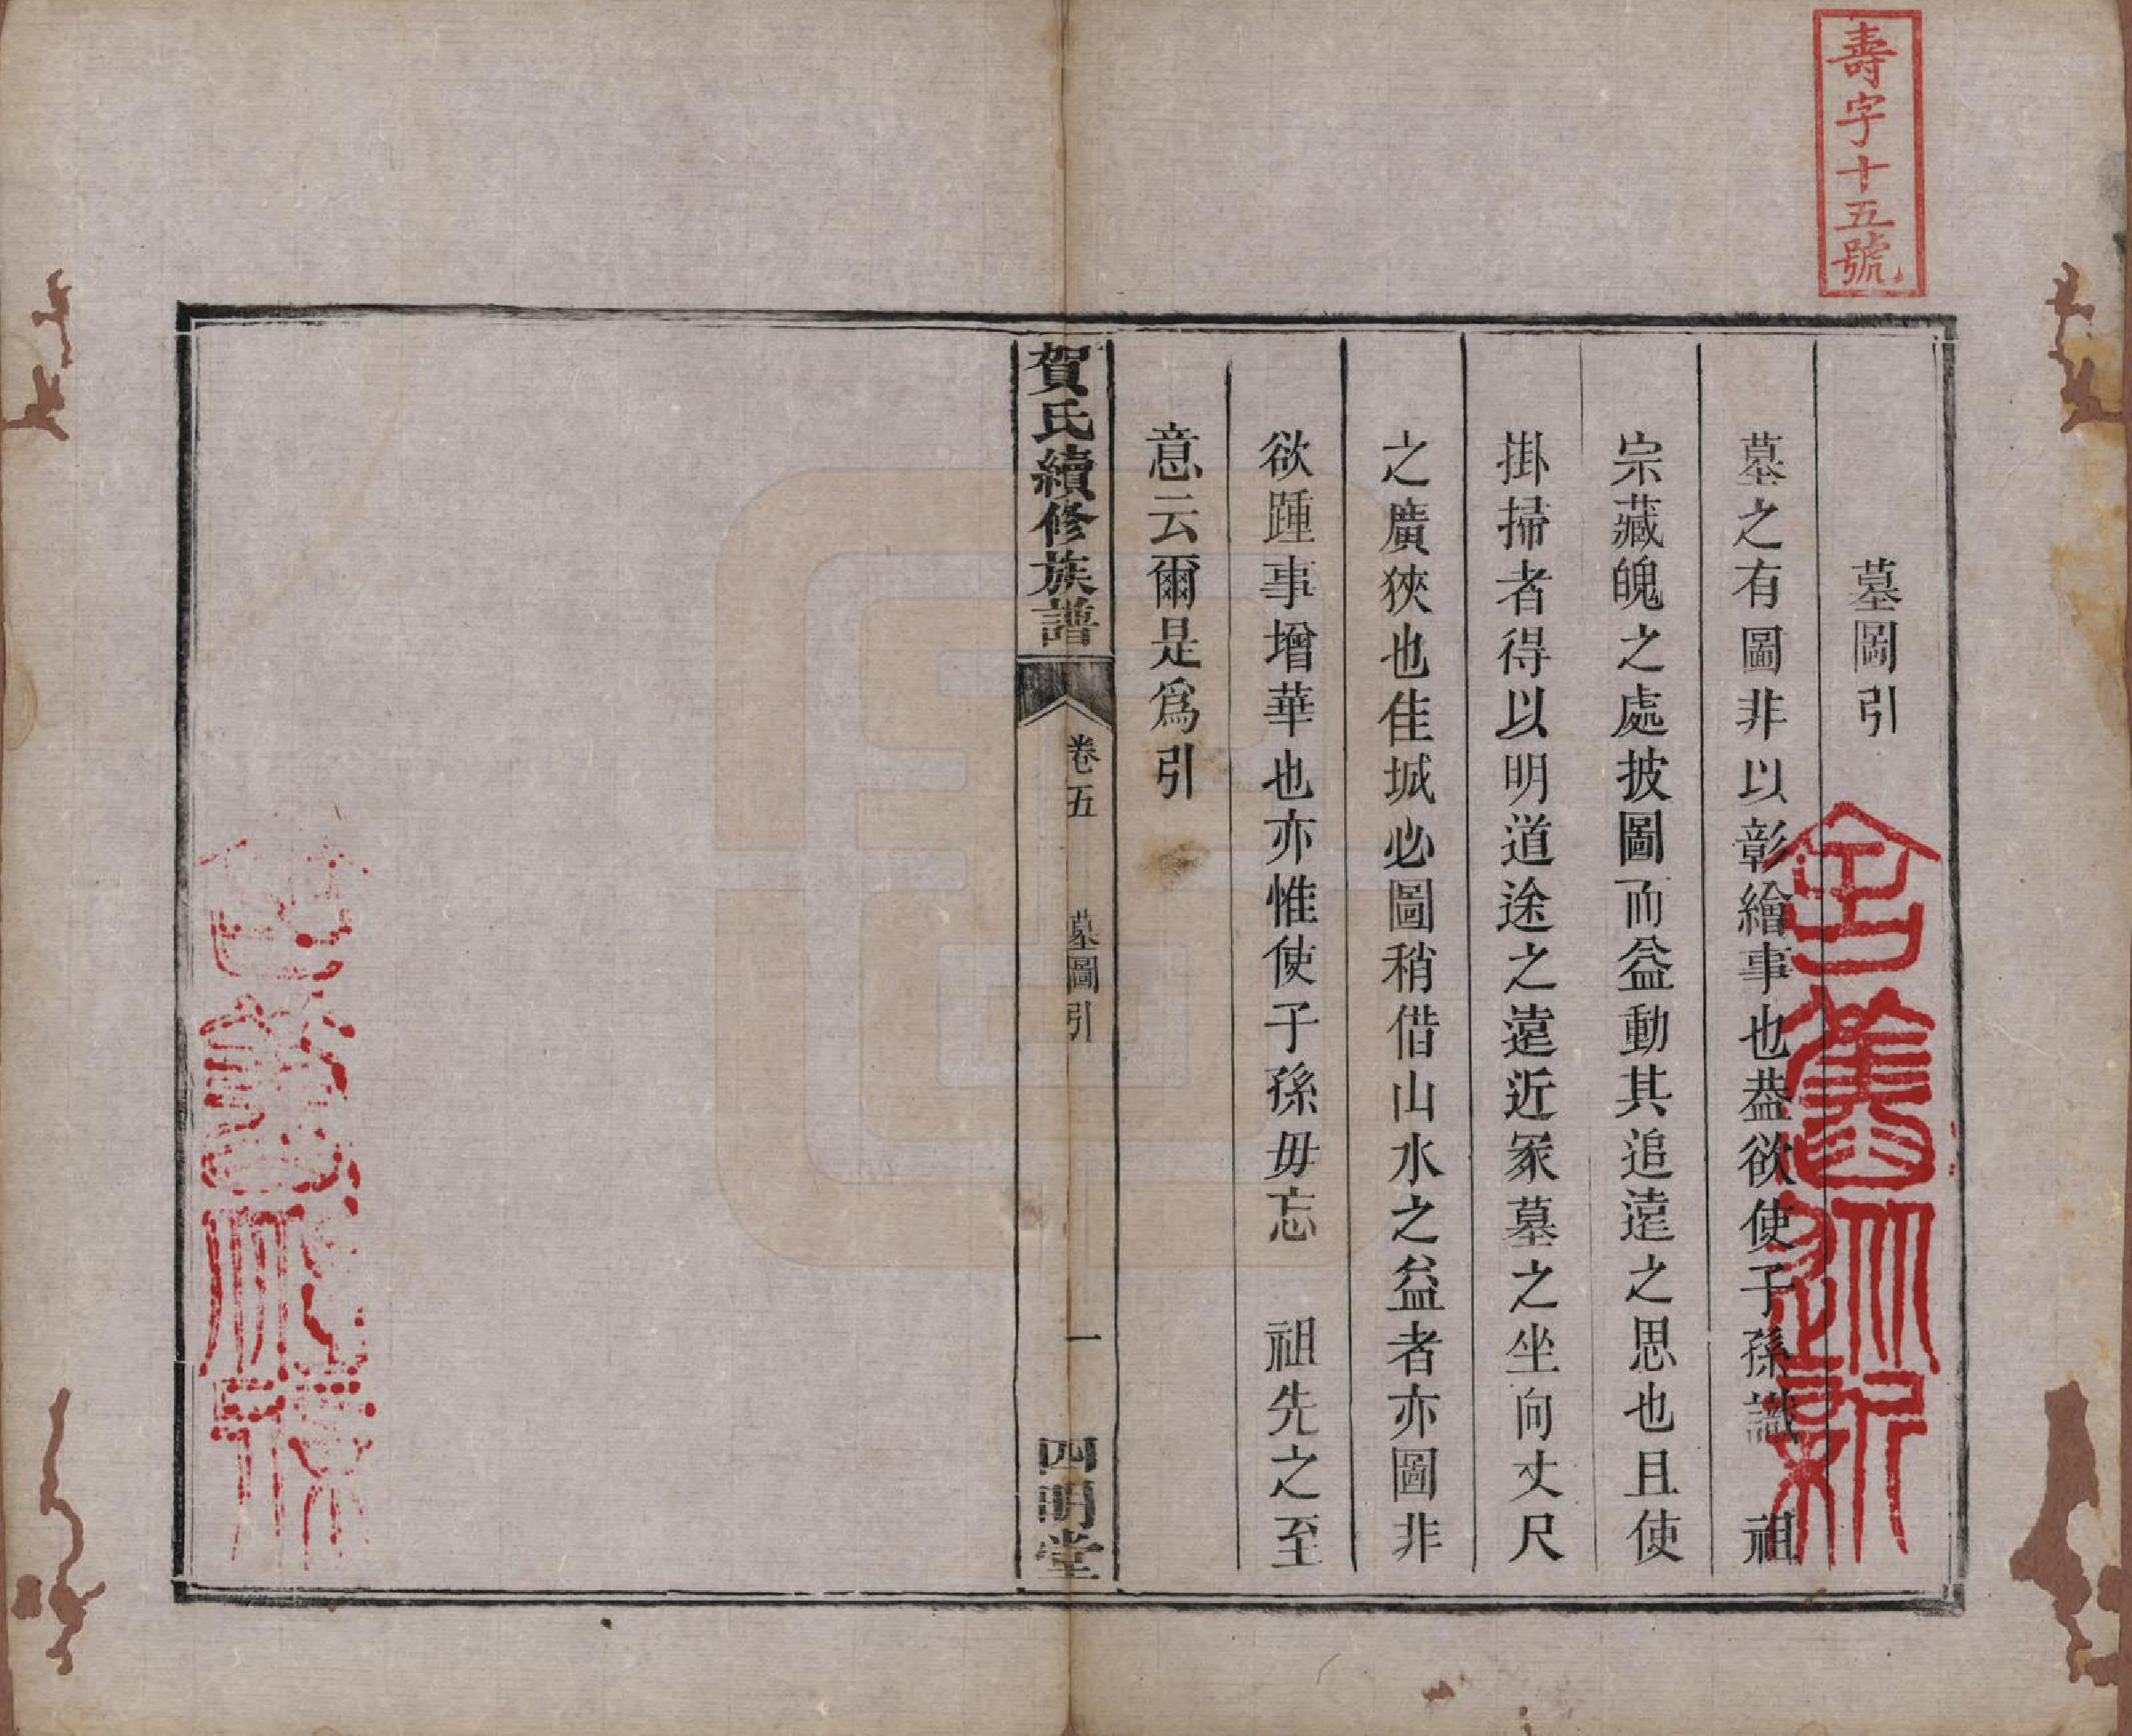 壽字十五號
墓圖引
墓之有圖非以彰繪事也葢欲使子孫識　祖
宗藏魄之處披圖而益動其追遠之思也且使
掛掃者得以明道途之遠近冢墓之坐向丈尺
之廣狹也佳城必圖稍借山水之益者亦圖非
欲踵事增華也亦惟使子孫毋忘　祖先之至
意云爾是爲引
賀氏續修族譜　卷五　墓圖引　一　四明堂